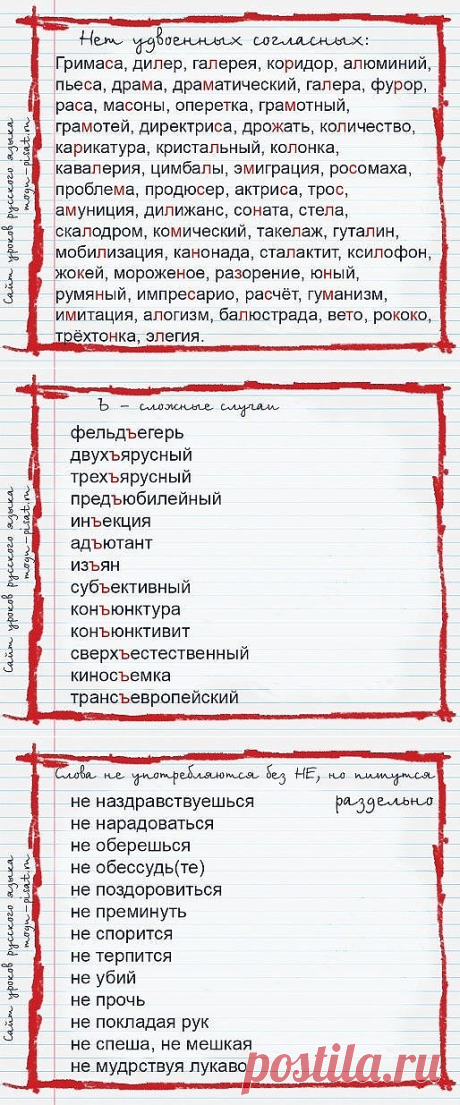 Нет удвоенных согласных:
Гримаса, дилер, галерея, коридор, алюминий,
пьеса, драма, драматический, галера, фурор,
раса, масоны, оперетка, грамотный,
грамотей, директриса, дрожать, количество,
карикатура, кристальный, колонка,
кавалерия, цимбалы, эмиграция, росомаха,
проблема, продюсер, актриса, трос,
амуниция, дилижанс, соната, стела,
скалодром, комический, такелаж, гуталин,
мобилизация, канонада, сталактит, ксилофон,
жокей, мороженое, разорение, юный,
румяный, импресарио, расчёт, гуманизм,
имитация, алогизм, балюстрада, вето, рококо,
трёхтонка, элегия.
Сайт уроков русского языка
mogu-pisat.ru
Ъ - сложные случаи
фельдъегерь
двухъярусный
трехъярусный
предъюбилейный
инъекция
адъютант
изъян
субъективный
конъюнктура
конъюнктивит
сверхъестественный
киносъемка
трансъевропейский
Сайт уроков русского языка
mogu-pisat.ru
Слова не употребляются без НЕ, но пишутся
раздельно
не наздравствуешься
не нарадоваться
не оберешься
не обессудь(те)
не поздоровиться
не преминуть
не спорится
не терпится
не убий
не прочь
не покладая рук
не спеша, не мешкая
не мудрствуя лукаво
Сайт уроков русского языка
mogu-pisat.ru
postila.ru